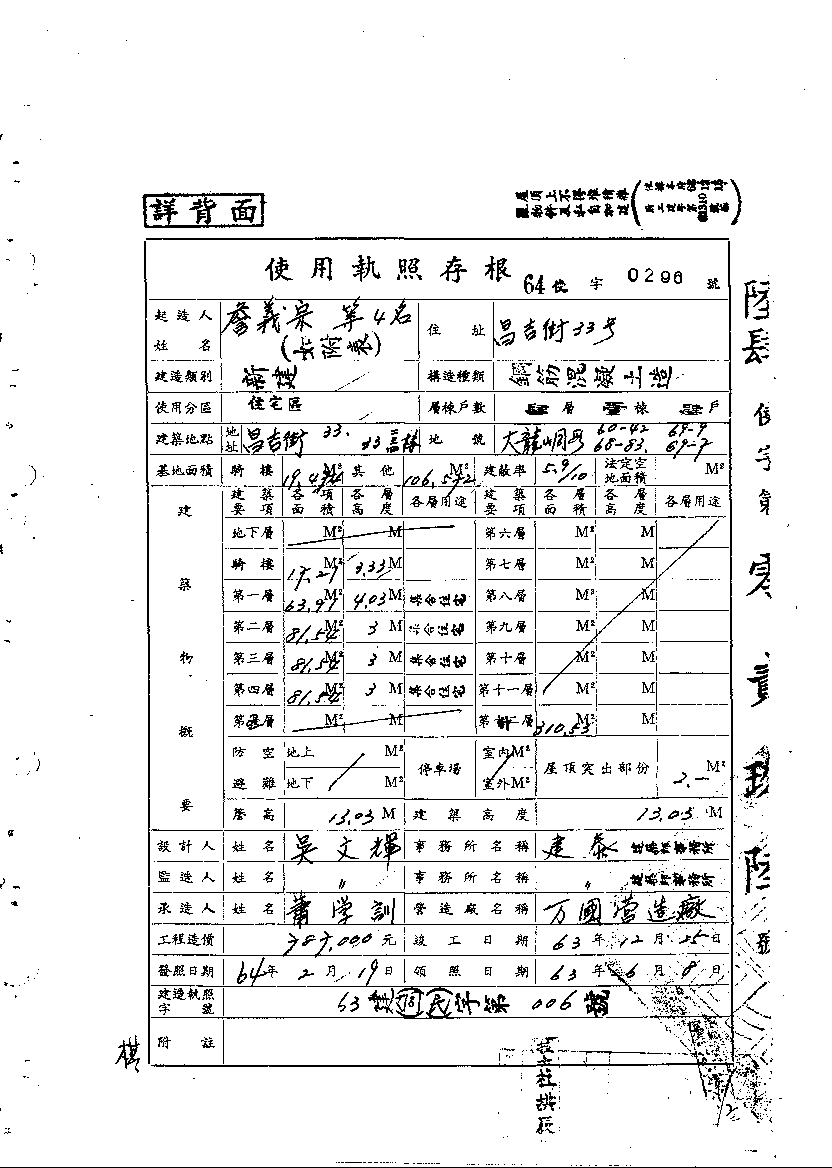 詳背面
屋頂上不得堆積雜
使用執照存根 64使字 0296 號
起造人姓名 詹義宗 等4名 (如附表) 住址 昌吉街33号
建造類別 新建 構造種類 鋼筋混凝土造
使用分區 住宅區 層棟戶數 層 棟 戶
建築地點 地址 昌吉街 33. 地號 大龍峒段 60-42 69-9
68-83. 69-7
基地面積 騎樓 19.434 M² 其他 106.572 M² 建蔽率 5.9/10 法定空地面積 M²
建築物概要
建築要項 各項面積 各層高度 各層用途 建築要項 各層面積 各層高度 各層用途
地下層 M² M 第六層 M² M
騎樓 17.27 M² 3.33 M 第七層 M² M
第一層 63.97 M² 4.03 M 集合住宅 第八層 M² M
第二層 81.54 M² 3 M 集合住宅 第九層 M² M
第三層 81.54 M² 3 M 集合住宅 第十層 M² M
第四層 81.54 M² 3 M 集合住宅 第十一層 M² M
第五層 M² M 310.53
防空避難 地上 M² 停車場 室內 M² 屋頂突出部份 M²
地下 M² 室外 M² 2.-
簷高 13.03 M 建築高度 13.03 M
設計人 姓名 吳文輝 事務所名稱 建泰 建築師事務所
監造人 姓名 〃 事務所名稱 〃 建築師事務所
承造人 姓名 蕭学訓 營造廠名稱 万國営造廠
工程造價 787,000 元 竣工日期 63年12月25日
發照日期 64年2月19日 領照日期 63年6月8日
建造執照字號 63建(同)(民)字第 006 號
附註
陸肆使字第零貳玖陸號